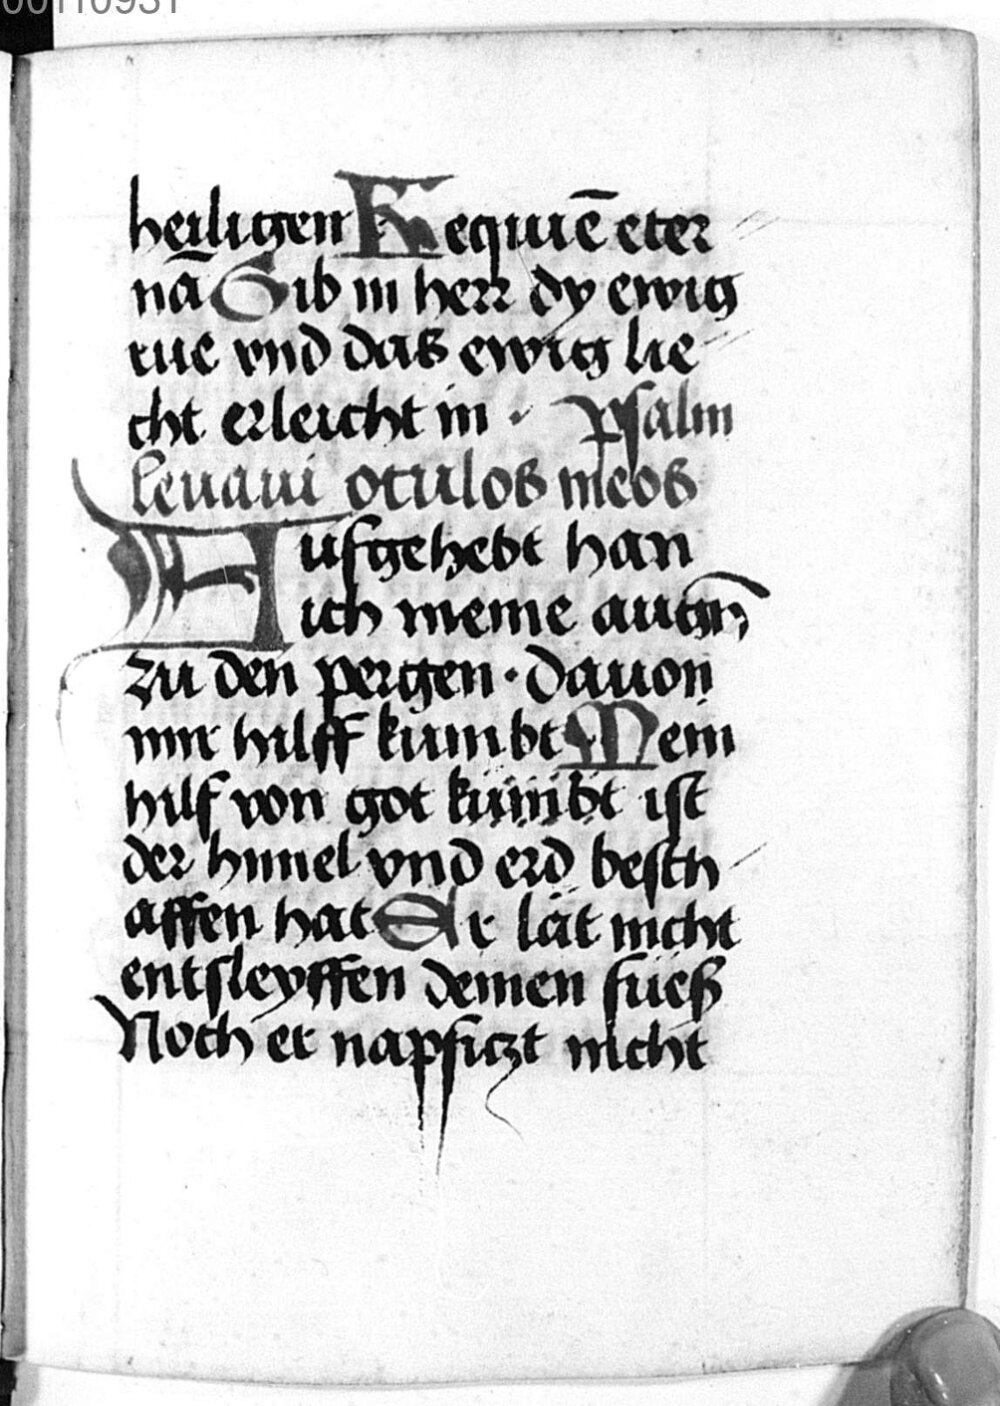 heiligen Requiē eter
nā Gib in herr dy ewig
rue vnd das ewig lie
cht erleicht in · Psalm
leuaui oculos meos
Aufgehebt han
ich meine augn
zu den pergen · dauon
mir hilff kumbt Mein
hilf von got kumbt ist
der himel vnd erd besch
affen hat Er lät nicht
entsleyffen deinen füeß
Noch er napficzt nicht